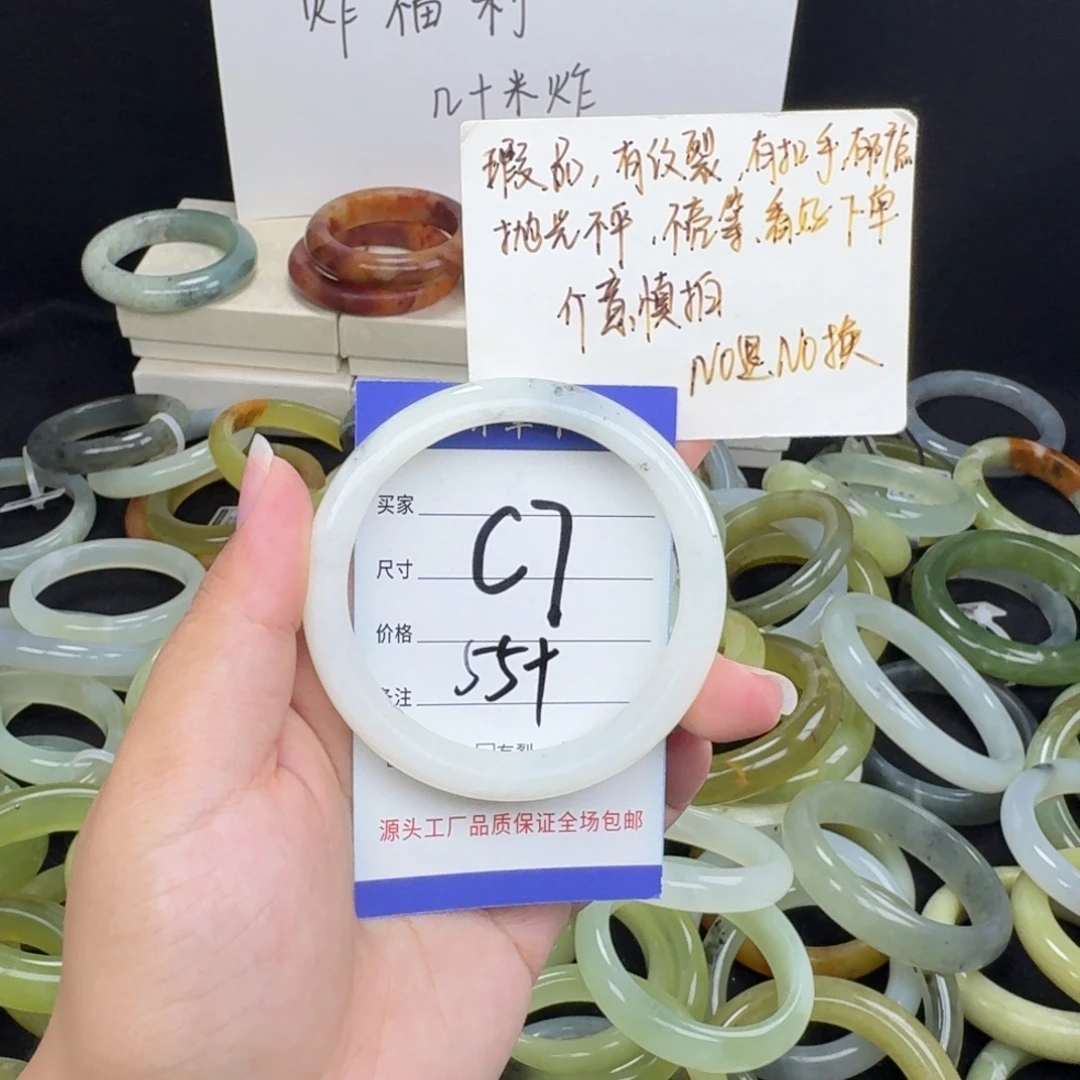 炸福利
几十米炸
瑕品,有纹裂,有扣手,有脏点
抛光不平,不亮等,看好下单
介意慎拍
NO退,NO换
买家
C7
尺寸
价格
55+
备注
有裂
源头工厂品质保证全场包邮